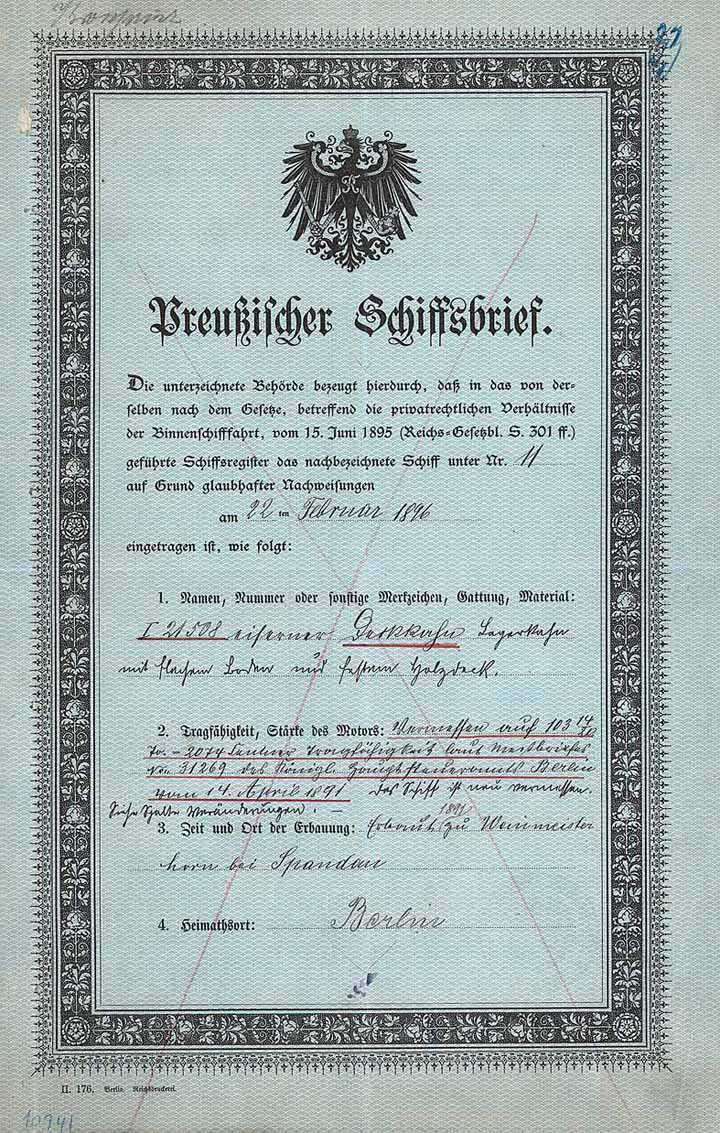 Preußischer Schiffsbrief.
Die unterzeichnete Behörde bezeugt hierdurch, daß in das von der-
selben nach dem Gesetze, betreffend die privatrechtlichen Verhältnisse
der Binnenschifffahrt, vom 15. Juni 1895 (Reichs-Gesetzbl. S. 301 ff.)
geführte Schiffsregister das nachbezeichnete Schiff unter Nr. 11
auf Grund glaubhafter Nachweisungen
am 22 ten Februar 1896
eingetragen ist, wie folgt:
1. Namen, Nummer oder sonstige Merkzeichen, Gattung, Material:
I 21508 eiserner Deckkahn Lagerkahn
mit flachem Boden und festem Holzdeck.
2. Tragfähigkeit, Stärke des Motors: Vermessen auf 103
To. = 2074 Centner Tragfähigkeit laut Meßbriefes
No. 31269 des Königl. Hauptsteueramts Berlin
vom 14. April 1891 Das Schiff ist neu vermessen.
Siehe Spalte Veränderungen. –
3. Zeit und Ort der Erbauung: Erbaut 1891 zu Weinmeister
horn bei Spandau
4. Heimathsort: Berlin
II. 176. Berlin. Reichsdruckerei.
10941